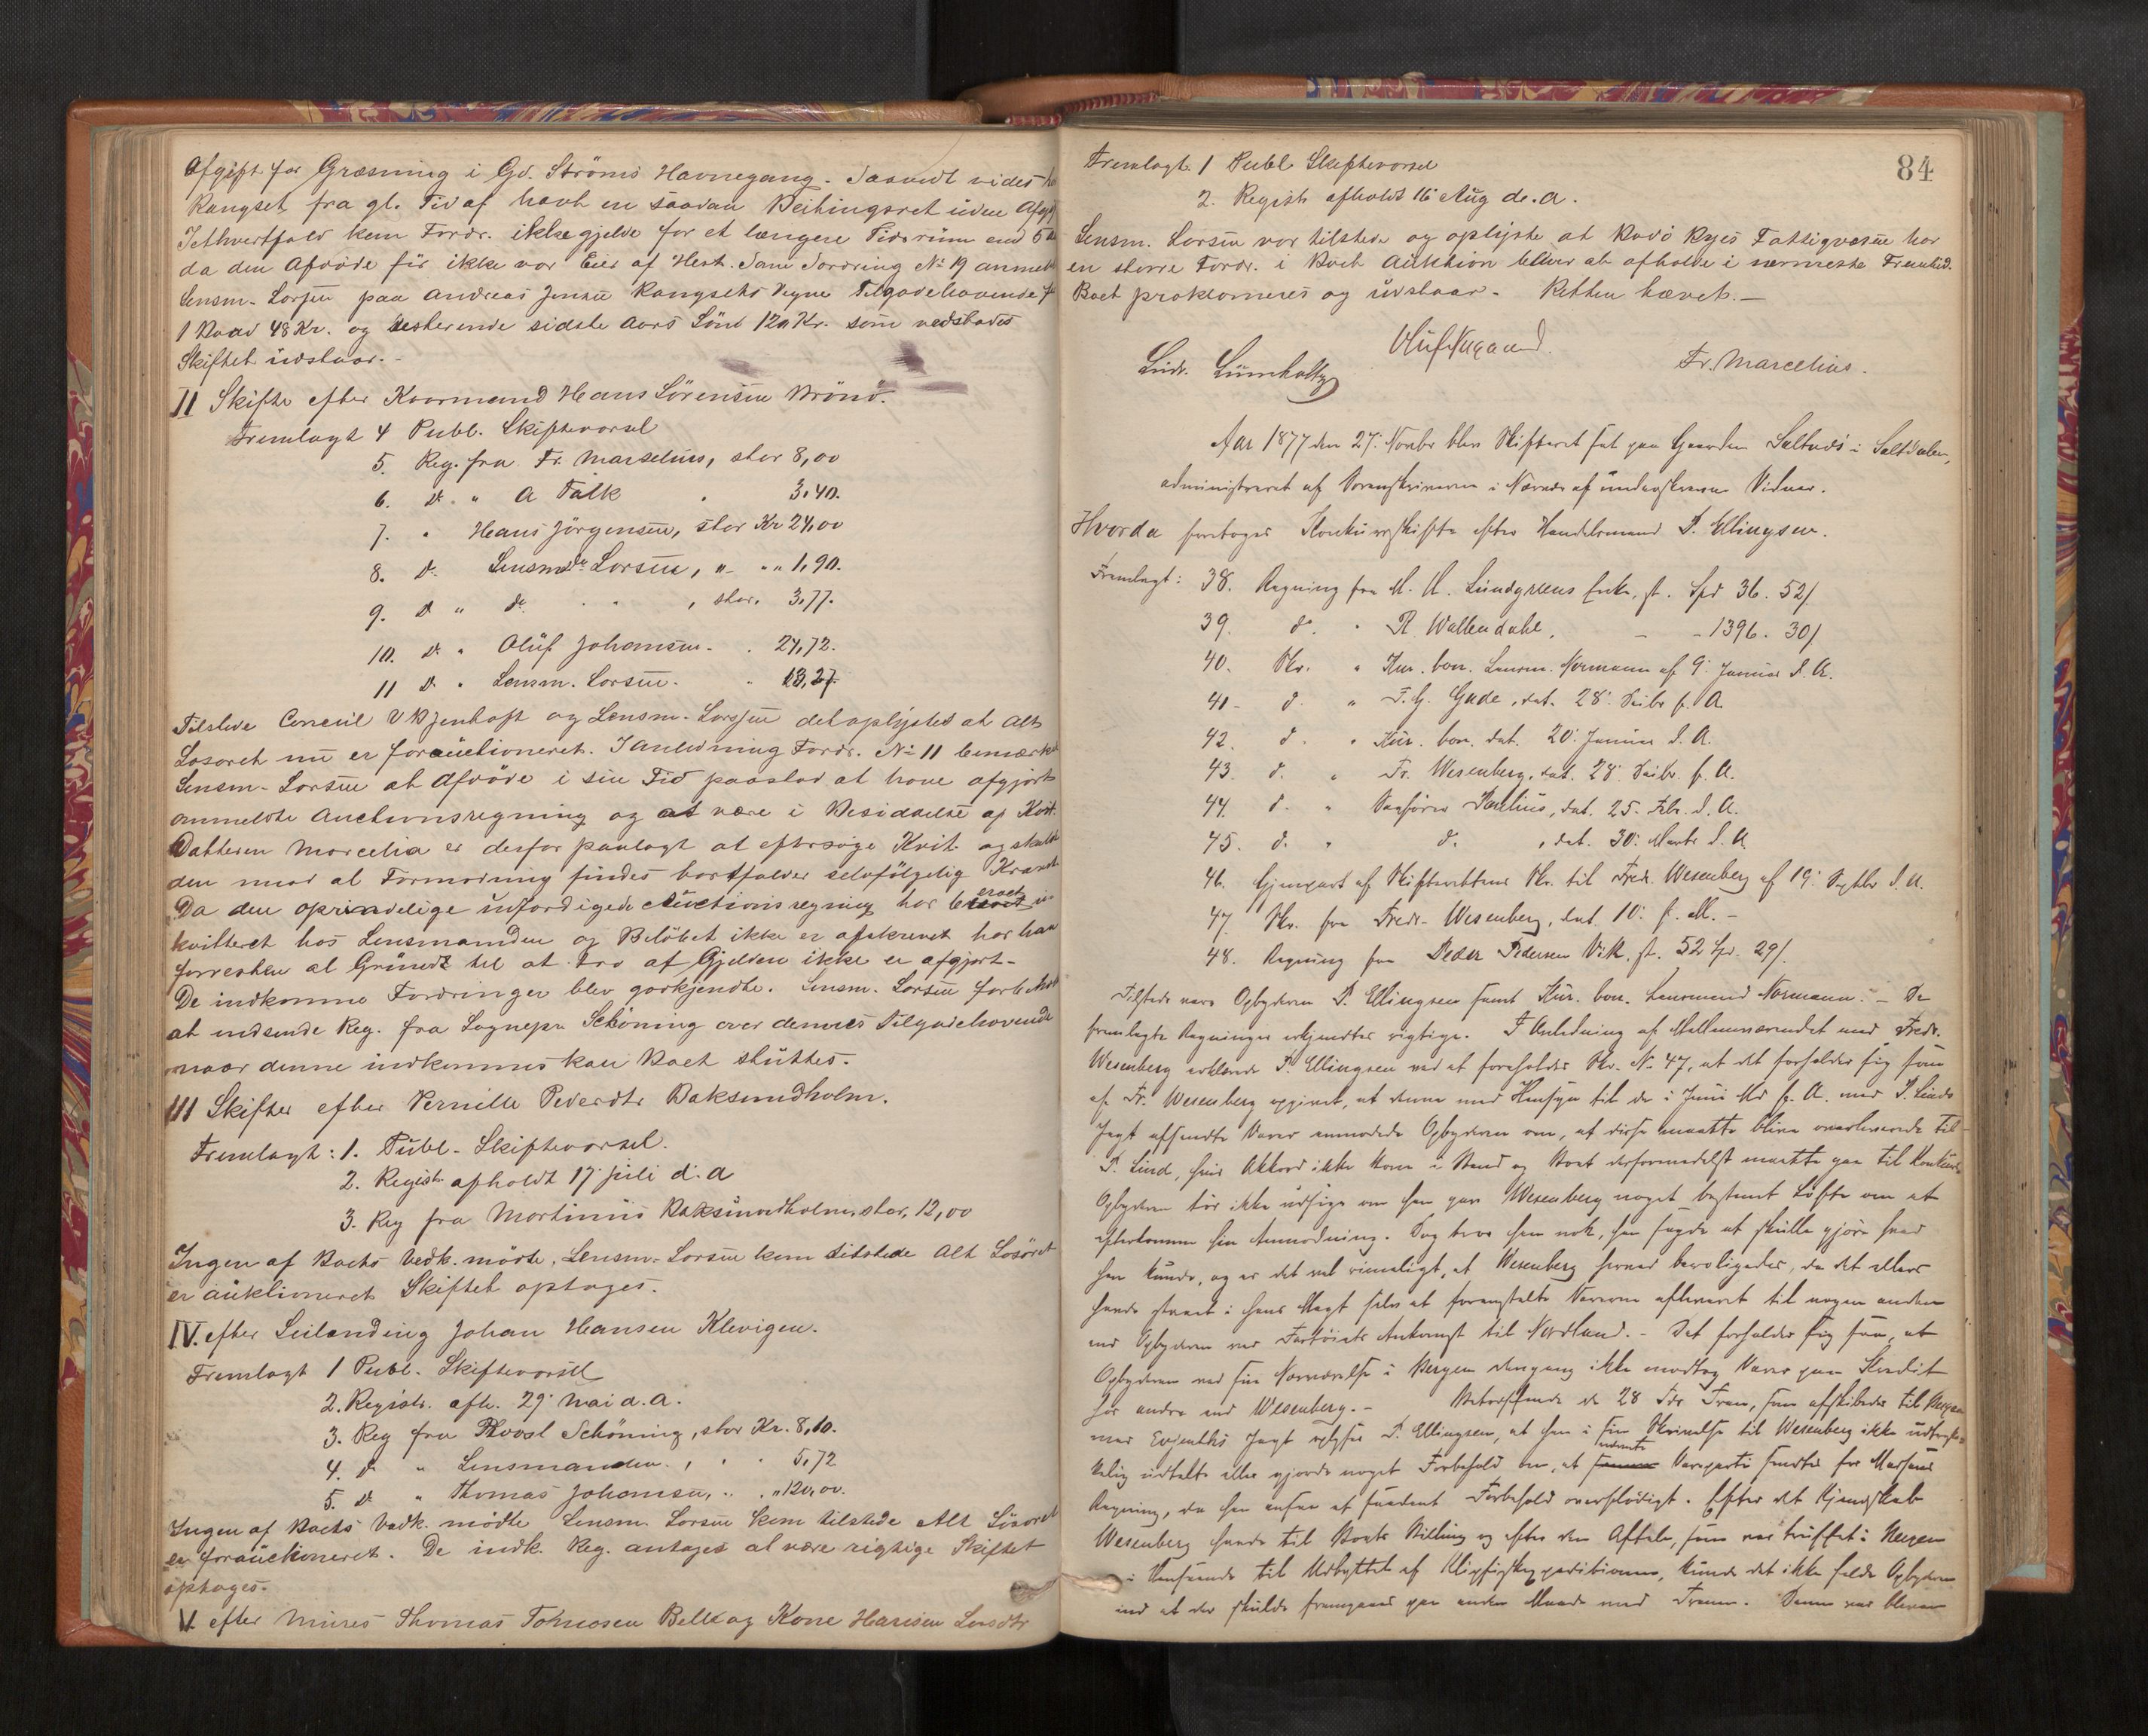 Afgift for Græsning i Gd. Ströms Havnegang. Saavidt vides
Rangset fra gl. Tid af havt en saadan Beitingsret uden Afg
Iethvertfald kan Fordr. ikke gjelde for et længere Tidsrum end 5
da den Afdöde för ikke var Eier af Hest. Fordring No 19 anmeldt
Lensm. Lorsen paa Andreas Jensen Rangseths Vegne Tilgodehavende
1 Baad 48 Kr. og resterende sidste Aars Lön 120 Kr. som vedstodes
Skiftet udstaar. -
II Skifte efter Kaarmand Hans Sörensen Brönö.
Fremlagt 4 Publ. Skiftevarsel
5. Reg. fra Fr. Marselius, stor 8,00
6. do. " A Falk " 3,40.
7. " Hans Jörgensen, stor Kr 24,00
8. do Lensmd Lorsen, " - " " 1,90.
9. do " do " " , stor. 3,77.
10. do. " Oluf Johansen. . 24,72.
11 do " Lensm. Lorsen. " 13,27.
Tilstede Consul Jentoft og Lensm. Lorsen det oplystes at Alt
Losöret nu er forauctioneret. I Anledning Fordr. No 11 bemærk
Lensm. Lorsen at Afdöde i sin Tid paastod at have afgjort
anmeldte Auctionsregning og at være i Besiddelse af Kvit.
Datteren Marcelia er derfor paalagt at eftersöge Kvit. og skulde
den mod al Formodning findes bortfalder selvfölgelig Kravet
Da den oprindelige udfærdigede Auctionsregning har beroet u-
kvitteret hos Lensmanden og Belöbet ikke er afskrevet har han
forresten al Grund til at tro at Gjelden ikke er afgjort-
De indkomne Fordringer blev godkjendte. Lensm. Lorsen forbeholdt
at indsende Reg. fra Sognepr. Schöning over dennes Tilgodehavende
naar denne indkommes kan Boet sluttes.
III Skifte efter Pernille Pedersdtr Baksundholm.
Fremlagt: 1. Publ. Skiftevarsel.
2. Registr. afholdt 17 Juli d. a
3. Reg fra Mortinus Baksundholm, stor, 12,00
Ingen af Boets Vedk. mödte, Lensm. Lorsen kom tilstede Alt Losöret
er auktioneret Skiftet optages.
IV. efter Leilending Johan Hansen Klevigen.
Fremlagt 1 Publ. Skiftevarsel
2. Registr. afh. 29 Mai d. a.
3. Reg fra Provst Schöning, stor Kr. 8,10.
4. do " Lensmanden. , " " 5,72
5. do " Thomas Johansen, " . " 120,00.
Ingen af Boets Vedk. mödte Lensm. Lorsen kom tilstede Alt Lösöret
er forauctioneret. De indk. Reg. antages al være rigtige Skiftet
optages.
V. efter Thomas Tomosen Belle og Kone Larsdtr
84
Fremlagt 1 Publ Skiftevarsel
2. Registr afholdt 16 Aug d. a.
Lensm. Lorsen var tilstede og oplyste at Bodö Byes Fattigvæsen har
en större Fordr. i Boet Auktion bliver at afholde i nærmeste Fremtid.
Boet proklameres og udstaar. Retten hævet. —
Fr. Marcelius.
Lumholtz
Aar 1877 den 27. Novbr blev Skifteret sat paa Gaarden Saltnæs i Saltdalen,
administreret af Sorenskriveren i Nærvær af underskrevne Vidner.
Hvorda foretoges Konkursskifte efter Handelsmand P. Ellingsen.
Fremlagt: 38. Regning fra M. H. Lundgreens Enke, st. Spd 36. 52/
39. do. " R. Wallendahl, - - 1396. 30/
40. Skr. " Kur. bon. Lensm. Normann af 9. Januar d. A.
41 - d. " F. G. Gade, dat. 28. Decbr f. A.
42. d. " Kur. bon. dat. 20. Januar d. A.
43. d. " Fr. Wesenberg, dat. 28. Decbr. f. A.
44. d. " Sagförer Paulius, dat. 25. Febr. d. A.
45. d. " d. , dat. 30. Marts d. A.
46. Gjenpart af Skifterettens Skr. til Fredr. Wesenberg af 19. Septbr d. A.
47. Skr. fra Fredr. Wesenberg, dat. 10. f. M. -
48. Regning fra Peder Pedersen Vik, st. 52 Spd. 29/.
Tilstede vare Opbyderen P. Ellingsen samt Kur. bon. Lensmand Normann. - De
fremlagte Regninger erkjendtes rigtige. I Anledning af Mellemværendet med Fredr.
Wesenberg erklærede P. Ellingsen ved at foreholdes Skr. No. 47, at det forholder sig som
af Fr. Wesenberg opgivet, at denne med Hensyn til de i Juni Md f. A. med P. Linds
Jagt afsendte Varer anmodede Opbyderen om, at disse maatte blive overleverede til
P. Lind, hvis Akkord ikke kom i Stand og Boet derformedelst maatte gaa til Konkurs
Opbyderen tör ikke udsige om han gav Wesenberg noget bestemt Löfte om at
efterkomme hin Anmodning. Dog tror han nok, han sagde at skulle gjöre hvad
han kunde, og er det vel rimeligt, at Wesenberg herved beroligedes, da det ellers
havde staaet i hans Magt selv at foranstalte Varerne afleveret til nogen anden
end Opbyderen ved Fartöiets Ankomst til Nordland. - Det forholder sig saa, at
Opbyderen ved sin Nærværelse i Bergen dengang ikke modtog Varer paa Kredit
hos andre end Wesenberg. - Betræffende de 28 Tdr Tran, som afskibedes til Bergen
med Evjenths Jagt oplyser P. Ellingsen, at han i sin Skrivelse til Wesenberg ikke udtryk-
kelig udtalte eller gjorde noget Forbehold om, at nævnte Vareparti sendtes for Massens
Regning, da han ansaa et saadant Forbehold overflödigt. Efter det Kjendskab
Wesenberg havde til Boets Stilling og efter den Aftale, som var truffet i Bergen
i Henseende til Udbyttet af Klipfiskexpeditionen, kunde det ikke falde Opbyderen
ind at der skulde fremgaaes paa anden Maade med Tranen. Denne var bleven